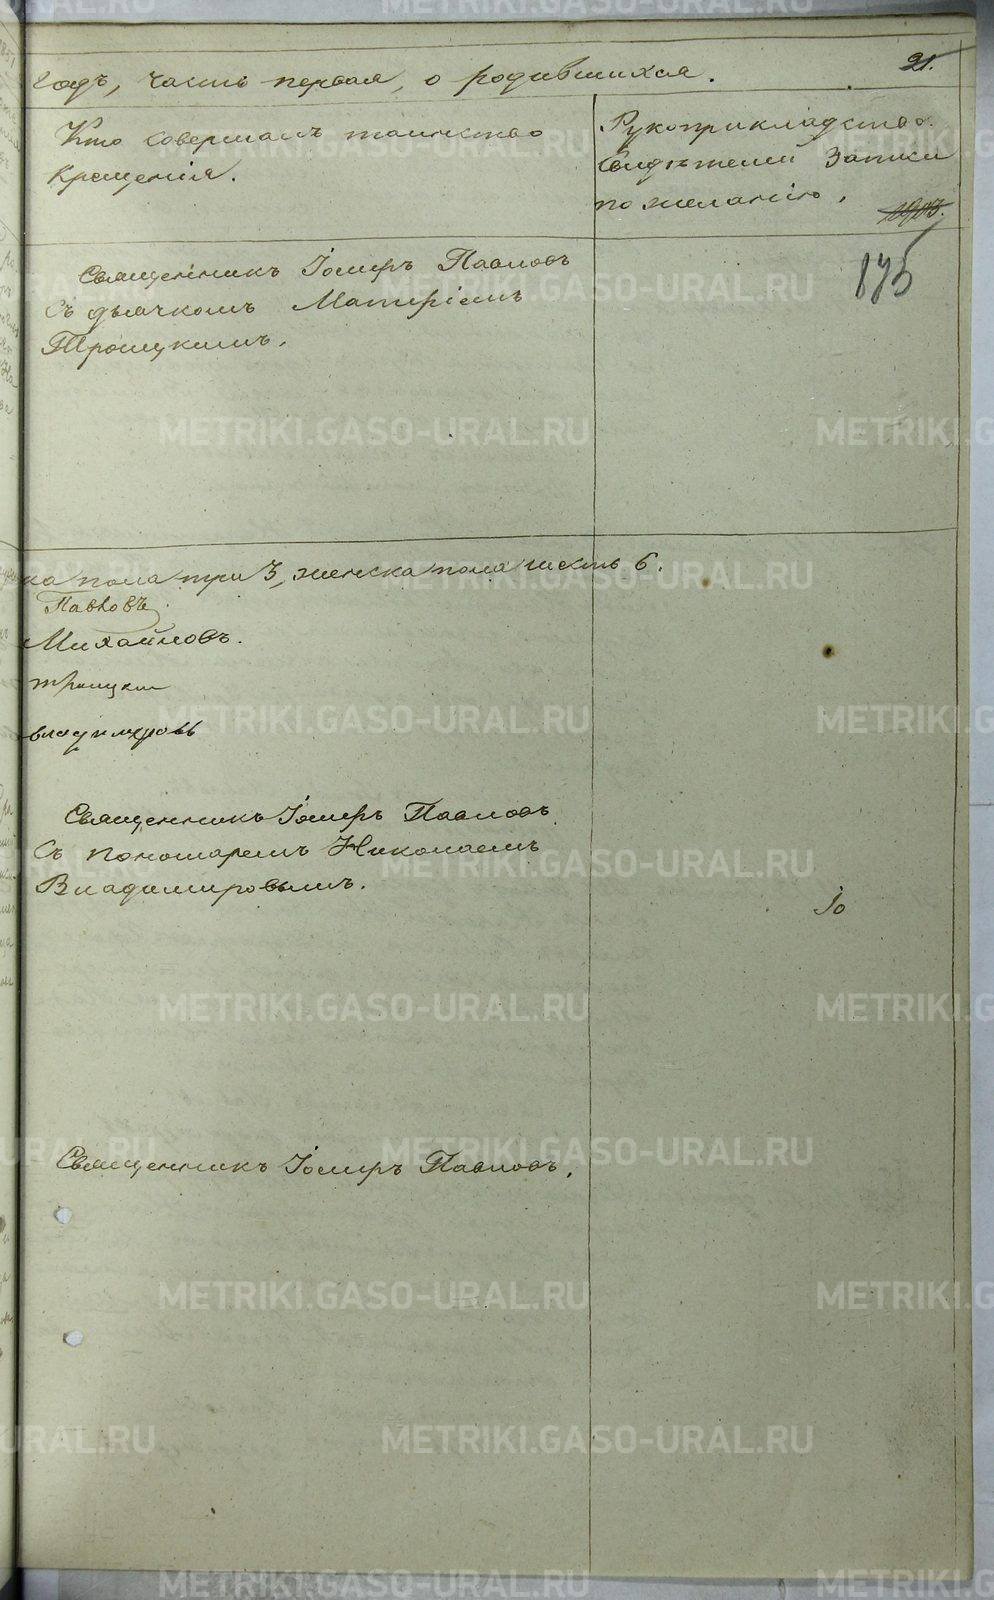 Годъ, часть первая, о родившихся.
21.
Кто совершалъ таинство
крещенія.
Рукоприкладство
Свидѣтелей записи
по желанію.
175
Священникъ Іосифъ Павловъ
Съ дьячкомъ
Троицкимъ.
ка пола три 3, женска пола шесть 6.
Павловъ
Михайловъ.
троицкій
владимировъ
Священникъ Іосифъ Павловъ
Съ пономаремъ Николаемъ
Владимировымъ.
Священникъ Іосифъ Павловъ.
METRIKI.GASO-URAL.RU